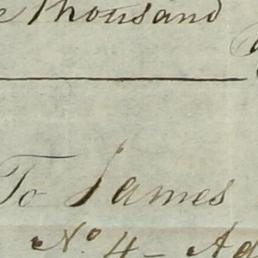 Thousand
To James
No 4 - Ag